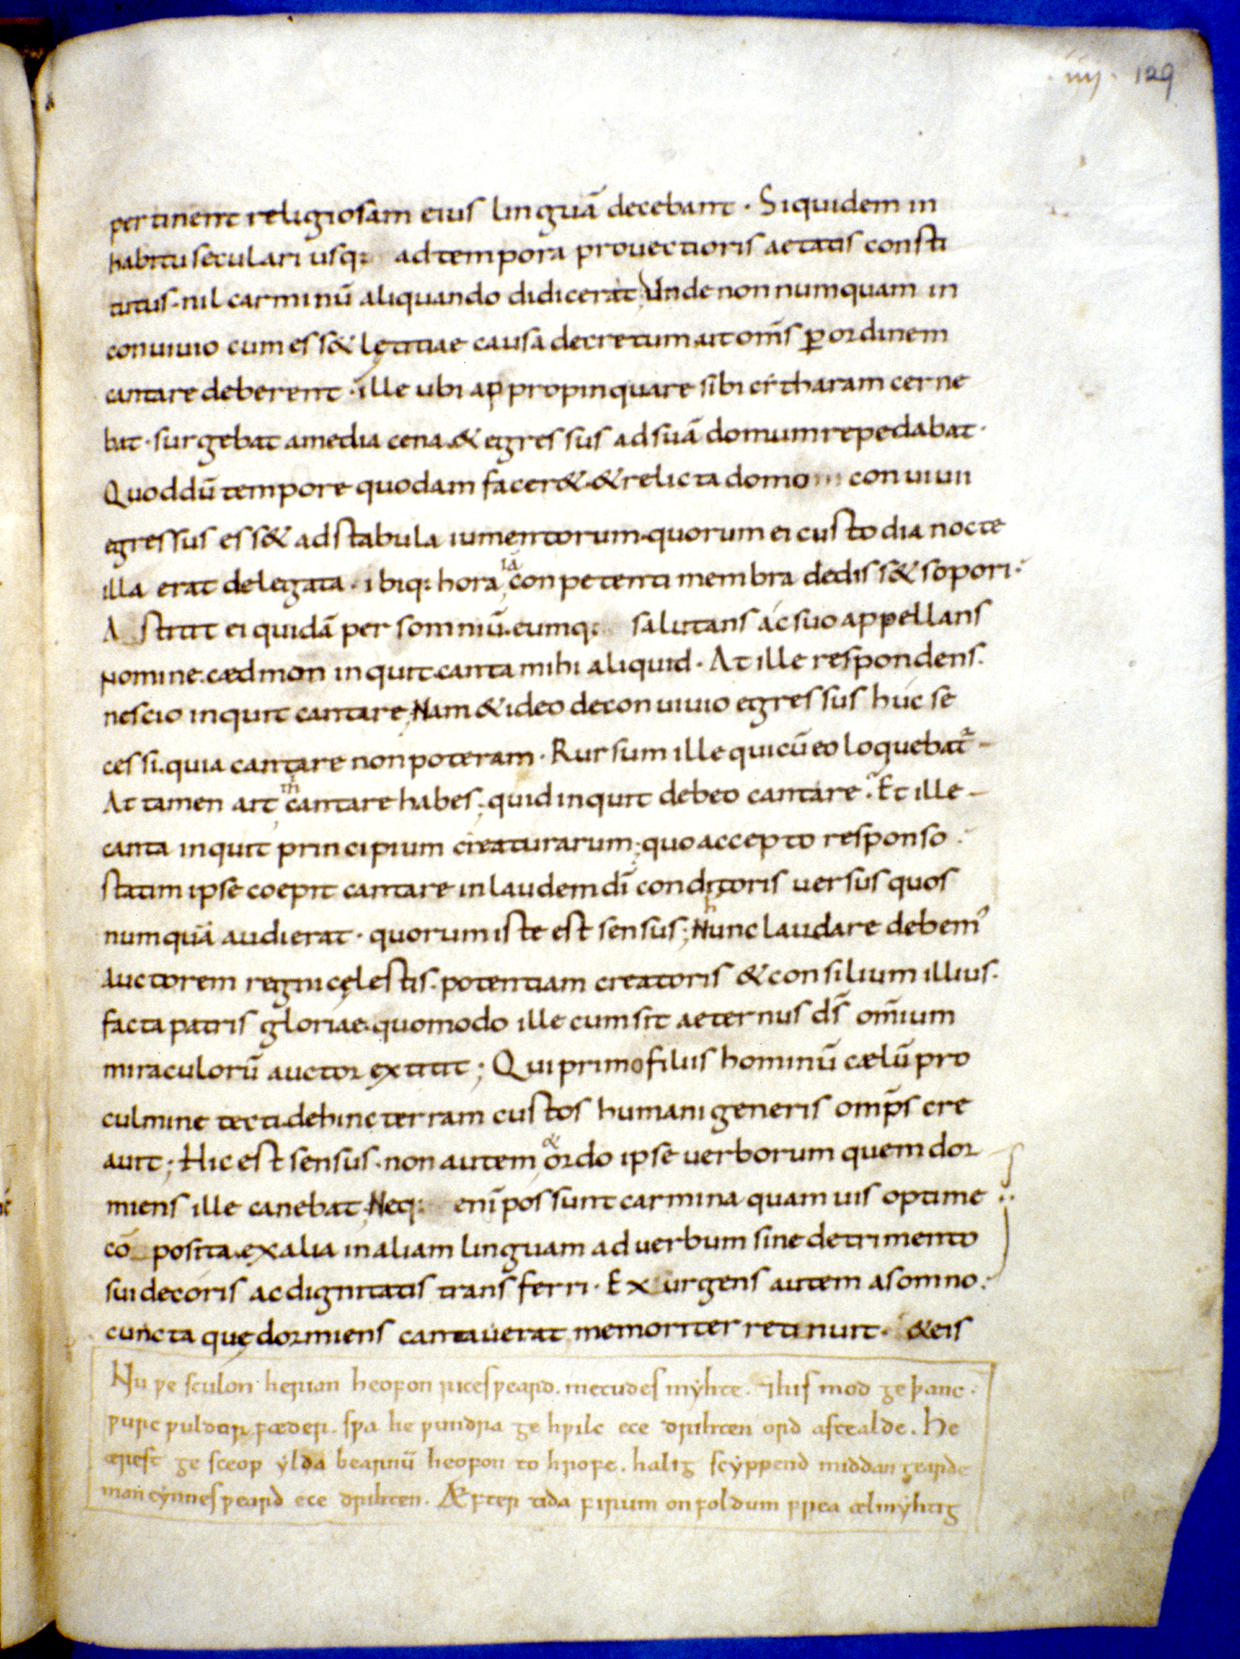 .iiij. 129
pertinent religiosam eius linguā decebant · Siquidem in
habitu seculari usq; ad tempora prouectioris aetatis consti
tutus · nil carminū aliquando didicerat; Unde non numquam in
conuiuio cum ess& lętitiae causa decretum · ut om̄s ꝑ ordinem
cantare deberent · ille ubi appropinquare sibi citharam cerne
bat · surgebat a media cena · & egressus ad suā domum repedabat ·
Quod dū tempore quodam facer& · & relicta domo conuiuii
egressus ess& ad stabula iumentorum · quorum ei custodia nocte
illa erat delegata · ibiq; hora iā conpetenti membra dediss& sopori ·
Astitit ei quidā per somniū · eumq; salutans ac suo appellans
nomine · cædmon inquit · canta mihi aliquid · At ille respondens ·
nescio inquit cantare; Nam & ideo de conuiuio egressus huc se
cessi · quia cantare non poteram · Rursum ille qui cū eo loquebat᷑
At tamen ait m̍ cantare habes; quid inquit debeo cantare · Et ille
canta inquit principium creaturarum; quo accepto responso ·
statim ipse coepit cantare in laudem dī conditoris uersus quos
numquā audierat · quorum iste est sensus; Nunc laudare debem᾽
auctorem regni cęlestis · potentiam creatoris & consilium illius ·
facta patris gloriae · quomodo ille cum sit aeternus ds̄ om̄ium
miraculorū auctor extitit; Qui primo filiis hominū cælū pro
culmine tecti · dehinc terram custos humani generis omp̄s cre
auit; Hic est sensus · non autem & ordo ipse uerborum quem dor
miens ille canebat; Neq; enī possunt carmina quamuis optime
cō posita · ex alia in aliam linguam ad uerbum sine detrimento
sui decoris ac dignitatis transferri · Exurgens autem a somno ·
cuncta quę dormiens cantauerat memoriter retinuit · & eis
Nu ƿe sculon herian heofon rices ƿeard · metudes myhte · ⁊ his mod ge þanc ·
ƿurc ƿuldor fæder · sƿa he ƿundra ge hƿilc ece drihten ord astealde · He
ærest ge sceop ylda bearnū heofon to hrofe · halig scyppend middan gearde
man cynnes ƿeard ece drihten · Æfter tida firum on foldum frea ælmyhtig